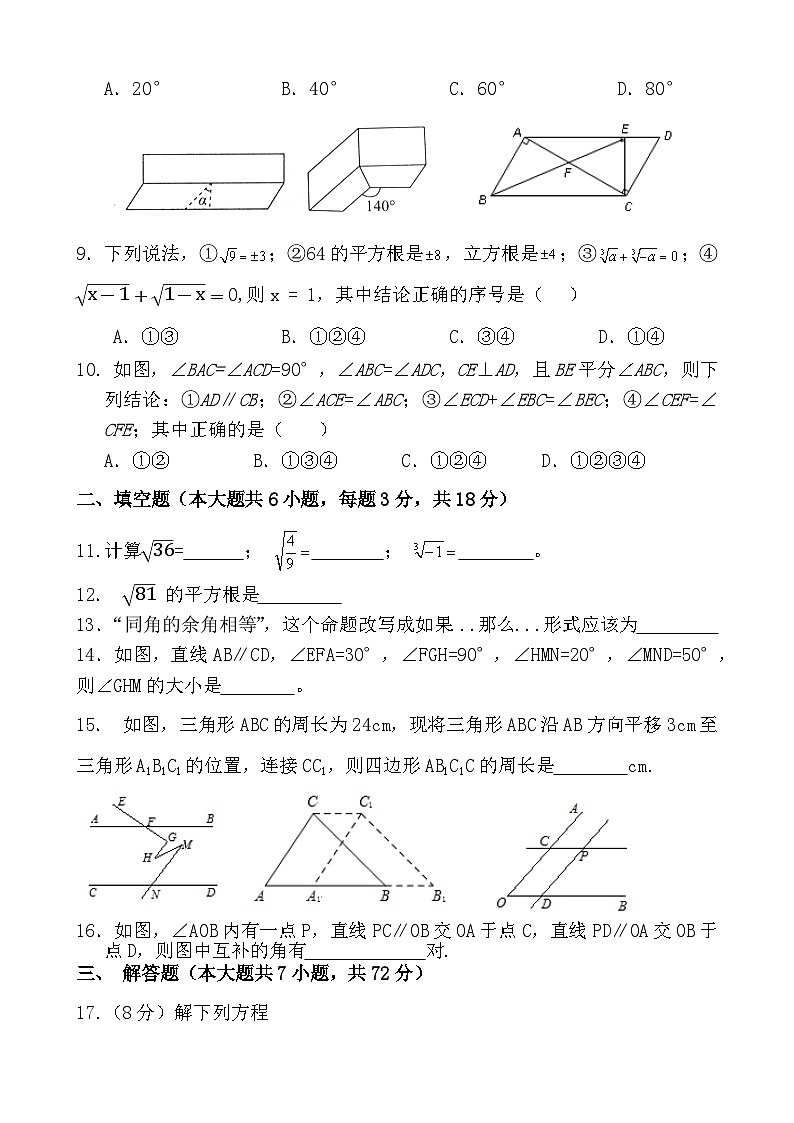 A. 20° B. 40° C. 60° D. 80°
α 140° A E D F B C
9. 下列说法,①√9=±3;②64的平方根是±8,立方根是±4;③∛a+∛-a=0;④
√x−1+√1−x=0,则x = 1,其中结论正确的序号是( )
A. ①③ B. ①②④ C. ③④ D. ①④
10. 如图,∠BAC=∠ACD=90°,∠ABC=∠ADC,CE⊥AD,且BE平分∠ABC,则下
列结论:①AD∥CB;②∠ACE=∠ABC;③∠ECD+∠EBC=∠BEC;④∠CEF=∠
CFE;其中正确的是( )
A. ①② B. ①③④ C. ①②④ D. ①②③④
二、填空题(本大题共6小题,每题3分,共18分)
11.计算√36=______; √4/9=________; ∛-1=________。
12. √81 的平方根是_________
13.“同角的余角相等”,这个命题改写成如果..那么...形式应该为_________
14.如图,直线AB∥CD,∠EFA=30°,∠FGH=90°,∠HMN=20°,∠MND=50°,
则∠GHM的大小是________。
15. 如图,三角形ABC的周长为24cm,现将三角形ABC沿AB方向平移3cm至
三角形A₁B₁C₁的位置,连接CC₁,则四边形AB₁C₁C的周长是________cm.
E A F B G M H C N D
C C₁ A A₁ B B₁
A C P O D B
16.如图,∠AOB内有一点P,直线PC∥OB交OA于点C,直线PD∥OA交OB于
点D,则图中互补的角有_____________对.
三、 解答题(本大题共7小题,共72分)
17.(8分)解下列方程